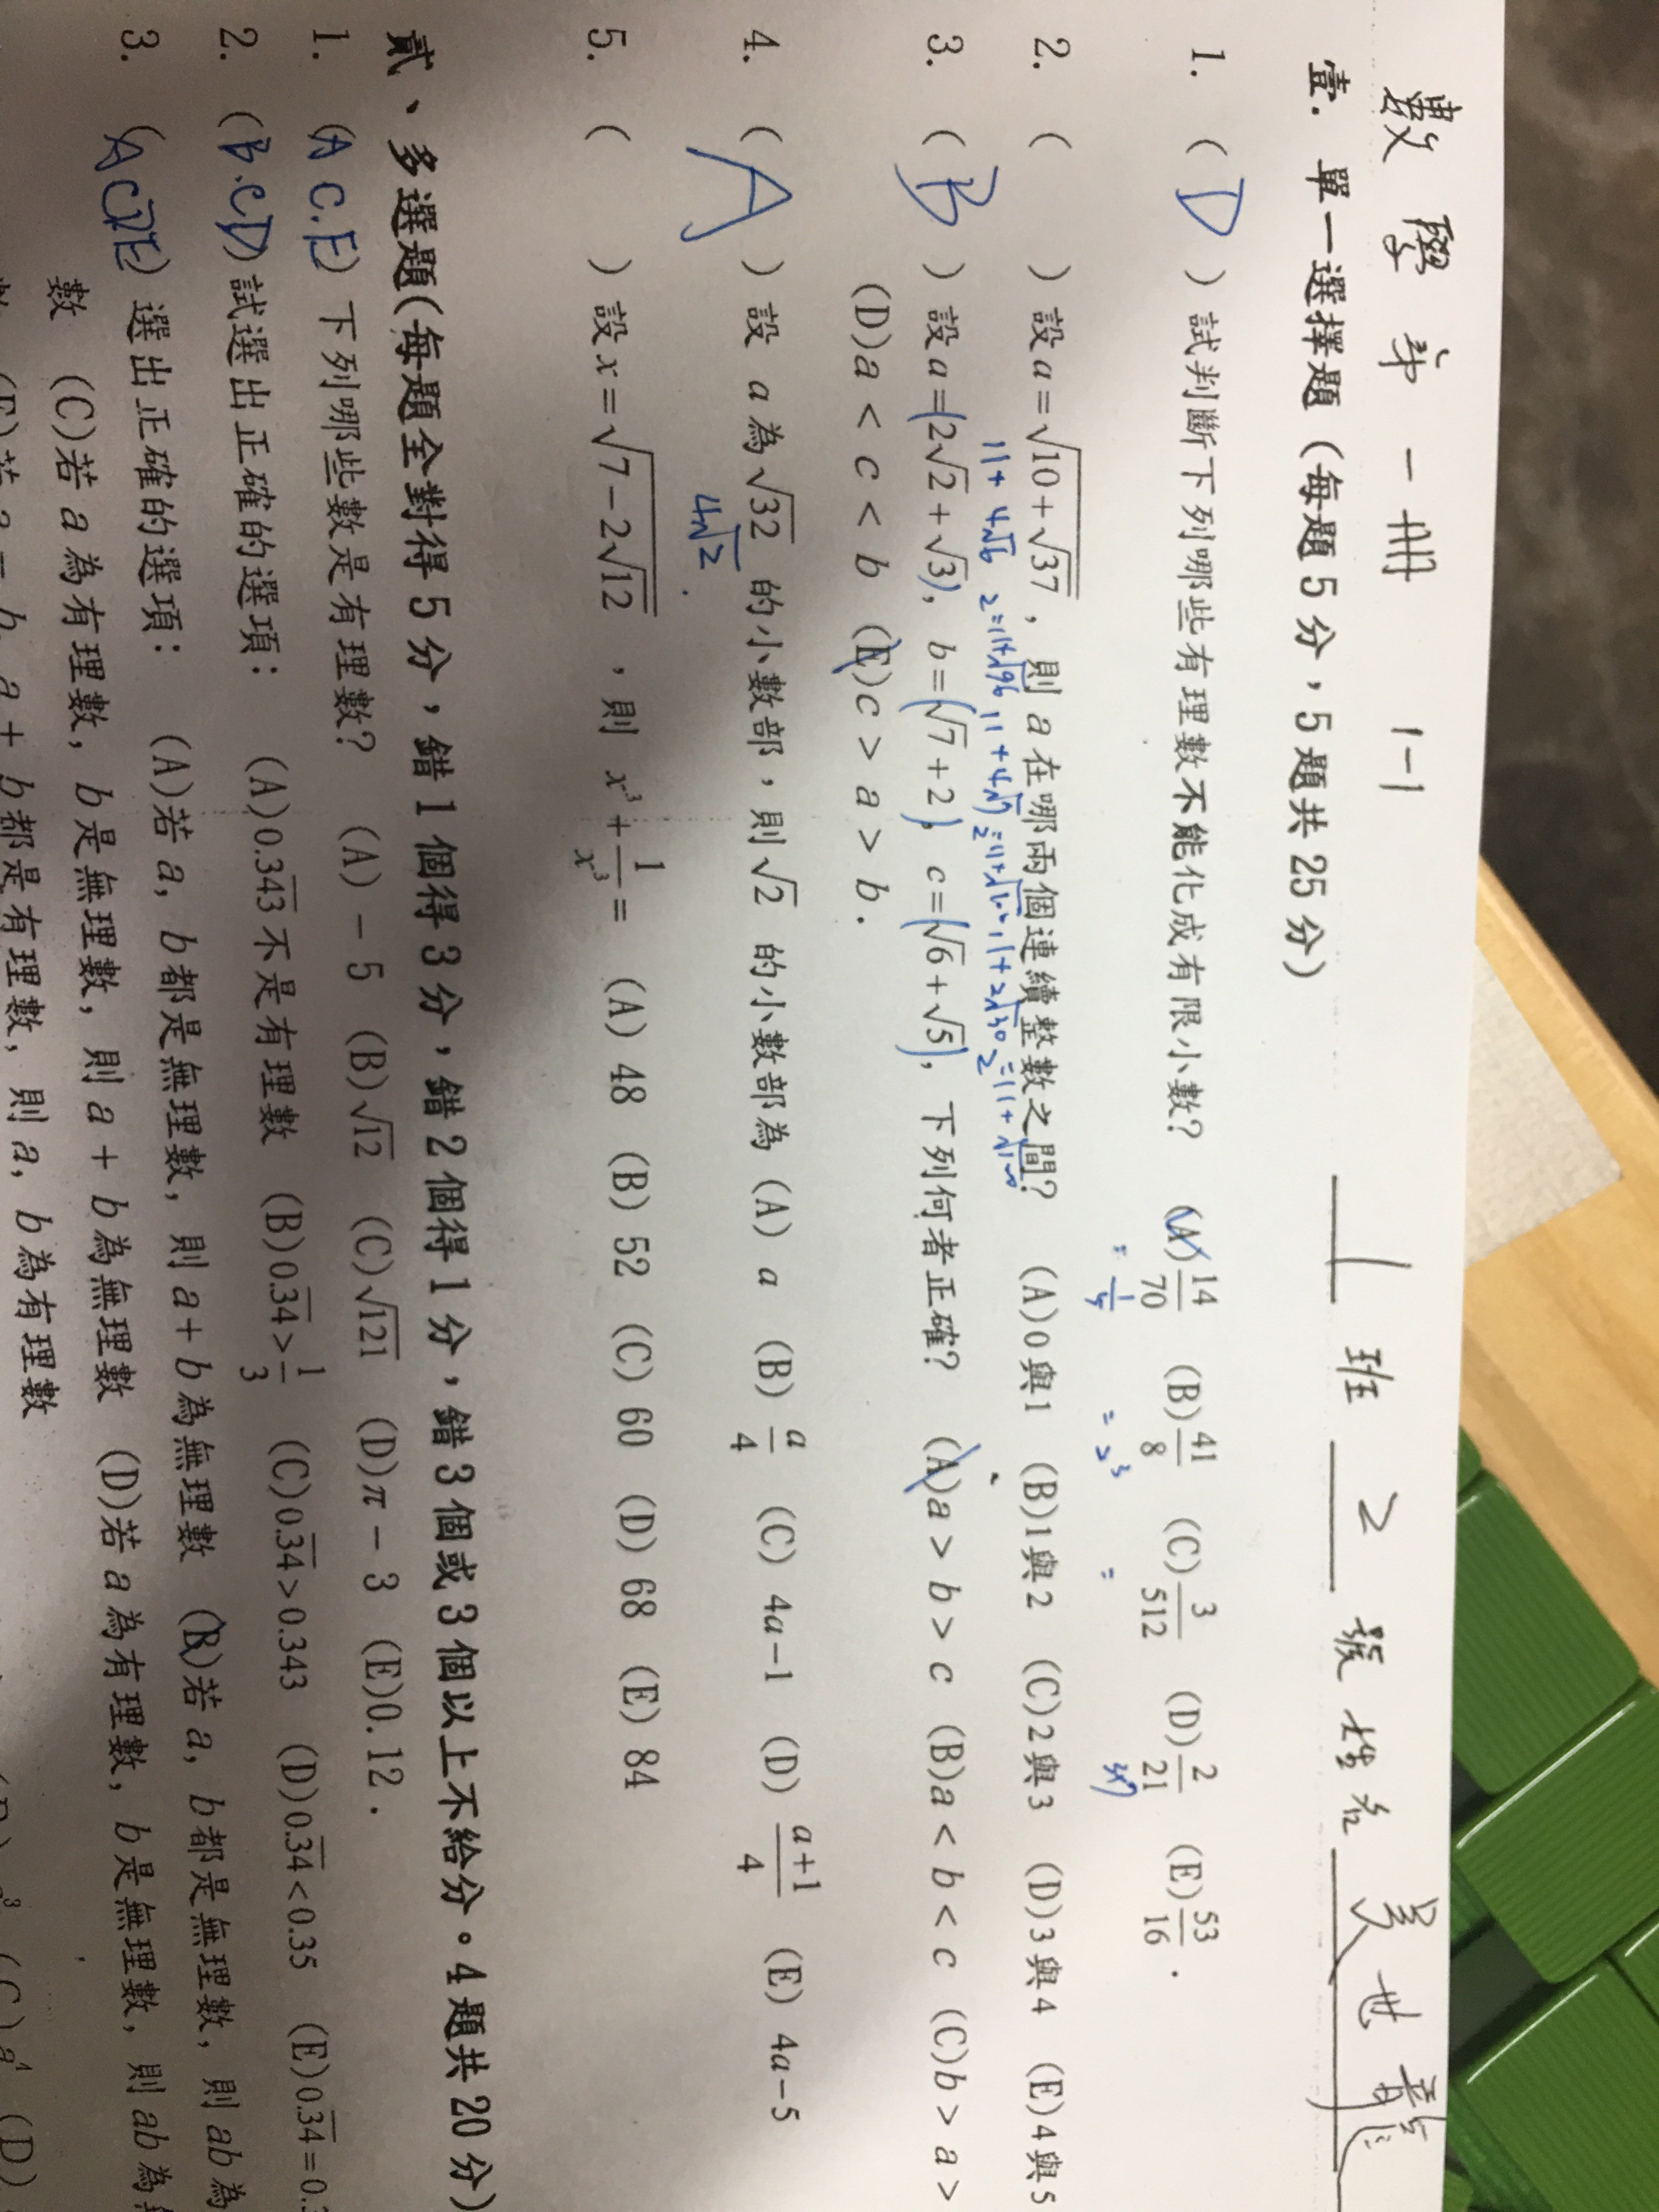 數學 第一冊 1-1 1 班 2 號 姓名
壹. 單一選擇題 (每題 5 分，5 題共 25 分)
1. ( D ) 試判斷下列哪些有理數不能化成有限小數? (A) 14/70 (B) 41/8 (C) 3/512 (D) 2/21 (E) 53/16 .
= 1/5 = 2^3 = 3×7
2. ( ) 設 a = √(10+√37) ，則 a 在哪兩個連續整數之間? (A)0與1 (B)1與2 (C)2與3 (D)3與4 (E)4與5
11+4√6
3. ( B ) 設 a=(2√2+√3), b=(√7+2), c=(√6+√5), 下列何者正確? (A)a > b > c (B)a < b < c (C)b > a >
(D)a < c < b (E)c > a > b .
4. ( A ) 設 a 為 √32 的小數部，則 √2 的小數部為 (A) a (B) a/4 (C) 4a-1 (D) (a+1)/4 (E) 4a-5
4√2
5. ( ) 設 x = √(7-2√12) ，則 x³ + 1/x³ = (A) 48 (B) 52 (C) 60 (D) 68 (E) 84
貳、多選題(每題全對得 5 分，錯 1 個得 3 分，錯 2 個得 1 分，錯 3 個或 3 個以上不給分。4 題共 20 分)
1. (A C.E) 下列哪些數是有理數? (A) - 5 (B)√12 (C)√121 (D)π - 3 (E)0.12 .
2. (B.CD) 試選出正確的選項: (A)0.34̅3̅ 不是有理數 (B)0.3̅4̅ > 1/3 (C)0.3̅4̅ > 0.343 (D)0.3̅4̅ < 0.35 (E)0.3̅4̅ = 0.
3. (ACDE) 選出正確的選項: (A)若 a, b 都是無理數, 則 a + b 為無理數 (B)若 a, b 都是無理數, 則 ab 為
數 (C)若 a 為有理數, b 是無理數, 則 a + b 為無理數 (D)若 a 為有理數, b 是無理數, 則 ab 為
a + b 都是有理數, 則 a, b 為有理數